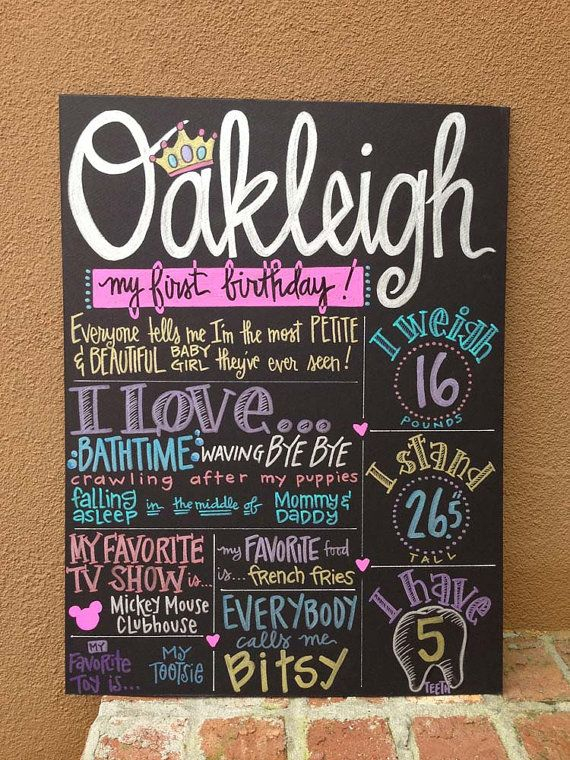 Oakleigh
my first birthday!
Everyone tells me I'm the most PETITE
& BEAUTIFUL BABY GIRL they've ever seen!
I LOVE...
BATHTIME WAVING BYE BYE
crawling after my puppies
falling asleep in the middle of Mommy & DADDY
MY FAVORITE
TV SHOW is...
MICKEY MOUSE
CLUBHOUSE
my FAVORITE food
is... FRENCH FRIES
MY
FAVORITE
TOY IS...
MY
TOOTSIE
EVERYBODY
calls me
BITSY
I weigh
16
POUNDS
I stand
26.5"
TALL
I have
5
TEETH